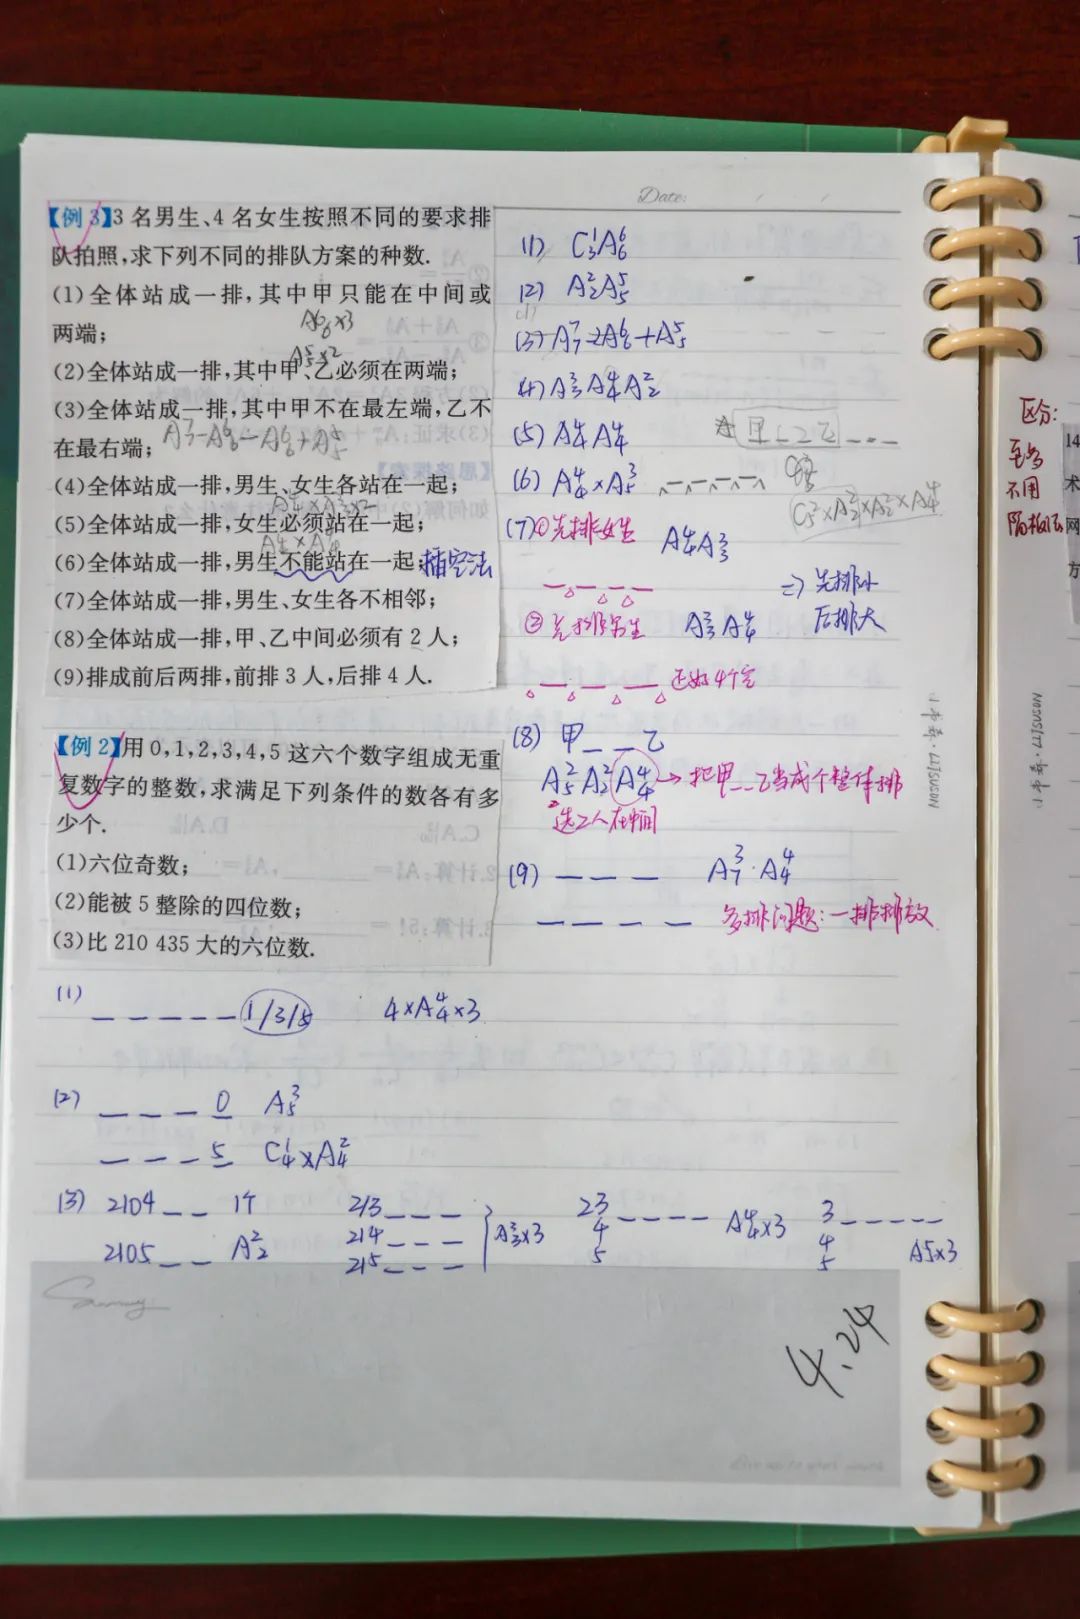 Date:
【例 3】3 名男生、4 名女生按照不同的要求排
队拍照,求下列不同的排队方案的种数.
(1)全体站成一排,其中甲只能在中间或
两端;
A⁶₆×3
(2)全体站成一排,其中甲、乙必须在两端;
A⁵₅×2
(3)全体站成一排,其中甲不在最左端,乙不
在最右端;
A⁷₇-A⁶₆-A⁶₆+A⁵₅
(4)全体站成一排,男生、女生各站在一起;
A⁴₄×A³₃×2
(5)全体站成一排,女生必须站在一起;
A⁴₄×A⁴₄
(6)全体站成一排,男生不能站在一起; 插空法
(7)全体站成一排,男生、女生各不相邻;
(8)全体站成一排,甲、乙中间必须有 2 人;
(9)排成前后两排,前排 3 人,后排 4 人.
(1) C¹₃A⁶₆
(2) A²₂A⁵₅
(3) A⁷₇-2A⁶₆+A⁵₅
(4) A³₃A⁴₄A²₂
(5) A⁴₄A⁴₄
(6) A⁴₄×A³₅
C²₅×A²₂×A²₂×A⁴₄
(7) ①先排女生 A⁴₄A³₃
⇒先排小
后排大
②先排男生 A³₃A⁴₄
还如4个空
(8) 甲_ _乙
A²₅A²₂A⁴₄→把甲_ _乙当成个整体排
选2人在中间
(9) _ _ _ A³₇·A⁴₄
_ _ _ _ 多排问题:一排排放
【例 2】用 0,1,2,3,4,5 这六个数字组成无重
复数字的整数,求满足下列条件的数各有多
少个.
(1)六位奇数;
(2)能被 5 整除的四位数;
(3)比 210 435 大的六位数.
(1) _ _ _ _ _ 1/3/5 4×A⁴₄×3
(2) _ _ _ 0 A³₅
_ _ _ 5 C¹₄×A²₄
(3) 2104_ _ 1个 213_ _ _ A³₃×3 23_ _ _ _ A⁴₄×3 3_ _ _ _ _
2105_ _ A²₂ 214_ _ _ 4 4
215_ _ _ 5 5 A⁵₅×3
4.24
区分:
至多
不用
隔板法
14
术
网
方
小本森·LIJSUSON
小本森·LIJSUSON